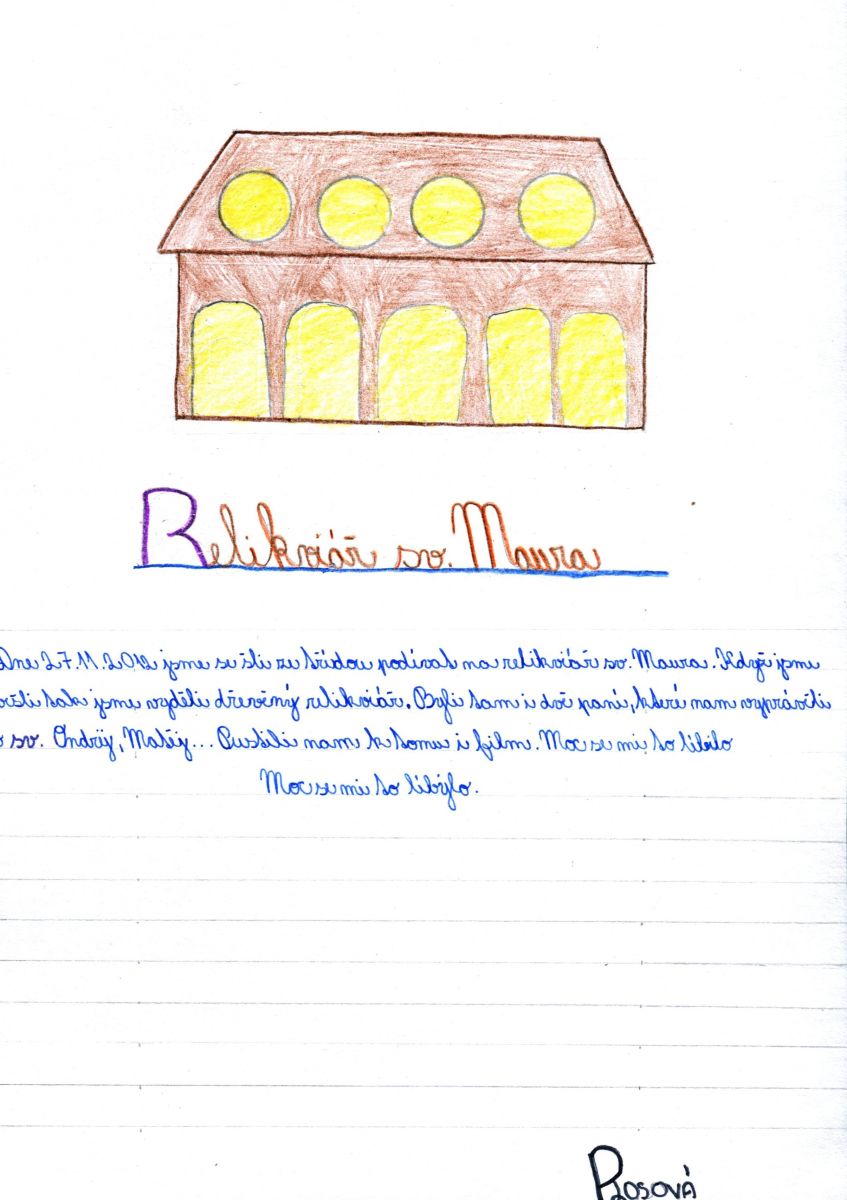 Relikviář sv. Maura
Dne 27.11.2012 jsme se šli ze třídou podívat na relikviář sv. Maura. Když jsme
vešli tak jsme vyděli dřevěný relikviář. Byli tam i dvě paní, které nam vyprávěli
o sv. Ondřÿj, Matěÿj... Pustili nam k tomu i film. Moc se mi to líbilo
Moc se mi to líbÿlo.
Rosová